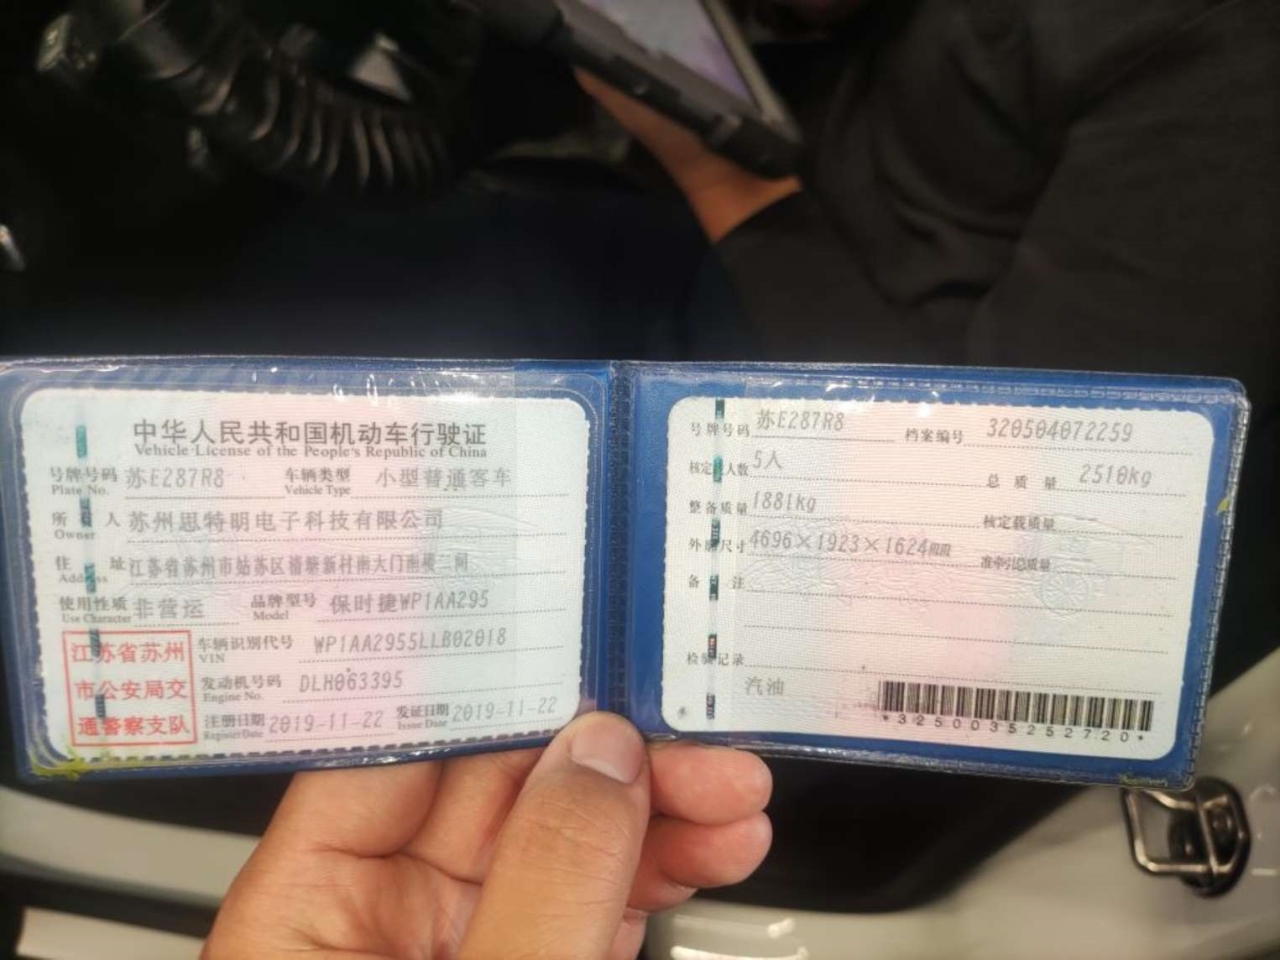 中华人民共和国机动车行驶证
Vehicle License of the People's Republic of China
号牌号码 苏E287R8 车辆类型 小型普通客车
Plate No. Vehicle Type
所 人 苏州思特明电子科技有限公司
Owner
住 址 江苏省苏州市姑苏区清塘新村南大门南楼二间
Address
使用性质 非营运 品牌型号 保时捷WP1AA295
Use Character Model
车辆识别代号 WP1AA2955LLB02018
VIN
发动机号码 DLH063395
Engine No.
注册日期 2019-11-22 发证日期 2019-11-22
Register Date Issue Date
江苏省苏州
市公安局交
通警察支队
号牌号码 苏E287R8 档案编号 320504072259
核定 人数 5人 总质量 2510kg
整备质量 1881kg 核定载质量 --
外廓尺寸 4696×1923×1624mm 准牵引总质量
备 注
检验记录
汽油
*3250035252720*